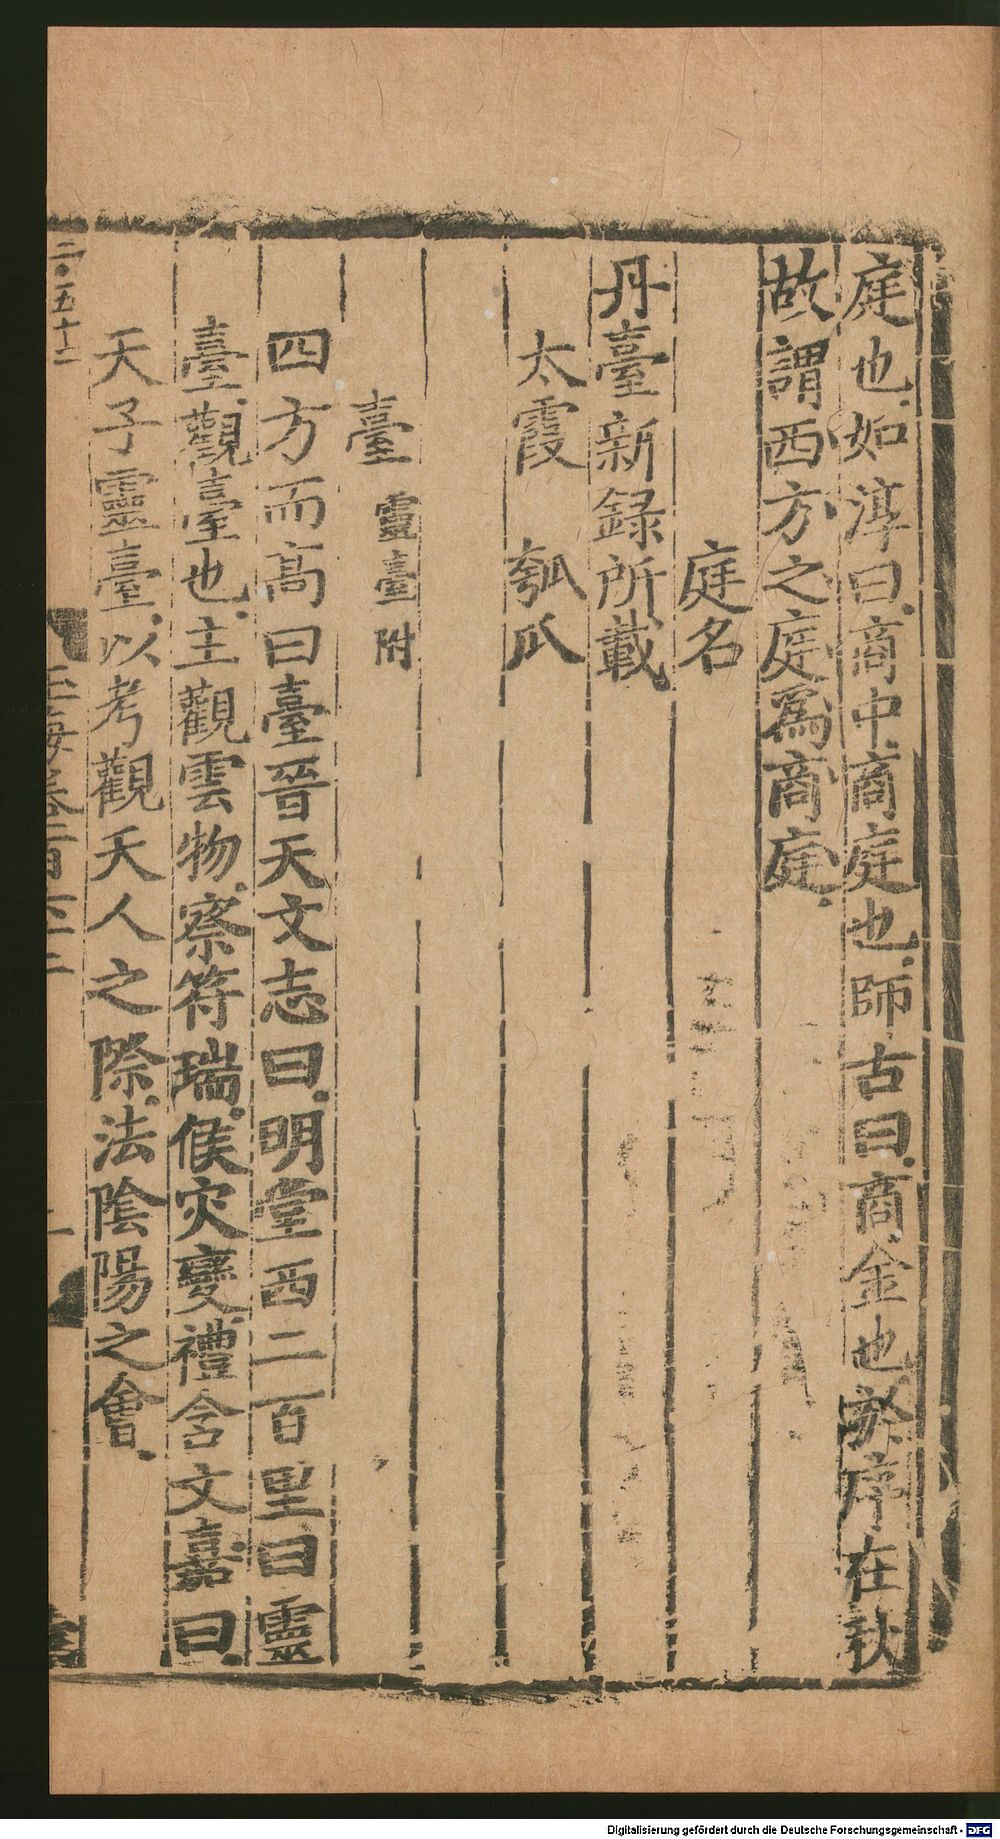 庭也如淳曰商中商庭也師古曰商金也於序在秋
故謂西方之庭爲商庭
庭名
丹臺新録所載
太霞 瓠瓜
臺 靈臺附
四方而高曰臺晉天文志曰明堂西二百里曰靈
臺觀臺也主觀雲物察符瑞候灾變禮含文嘉曰
天子靈臺以考觀天人之際法陰陽之會
二五十二
Digitalisierung gefördert durch die Deutsche Forschungsgemeinschaft - DFG